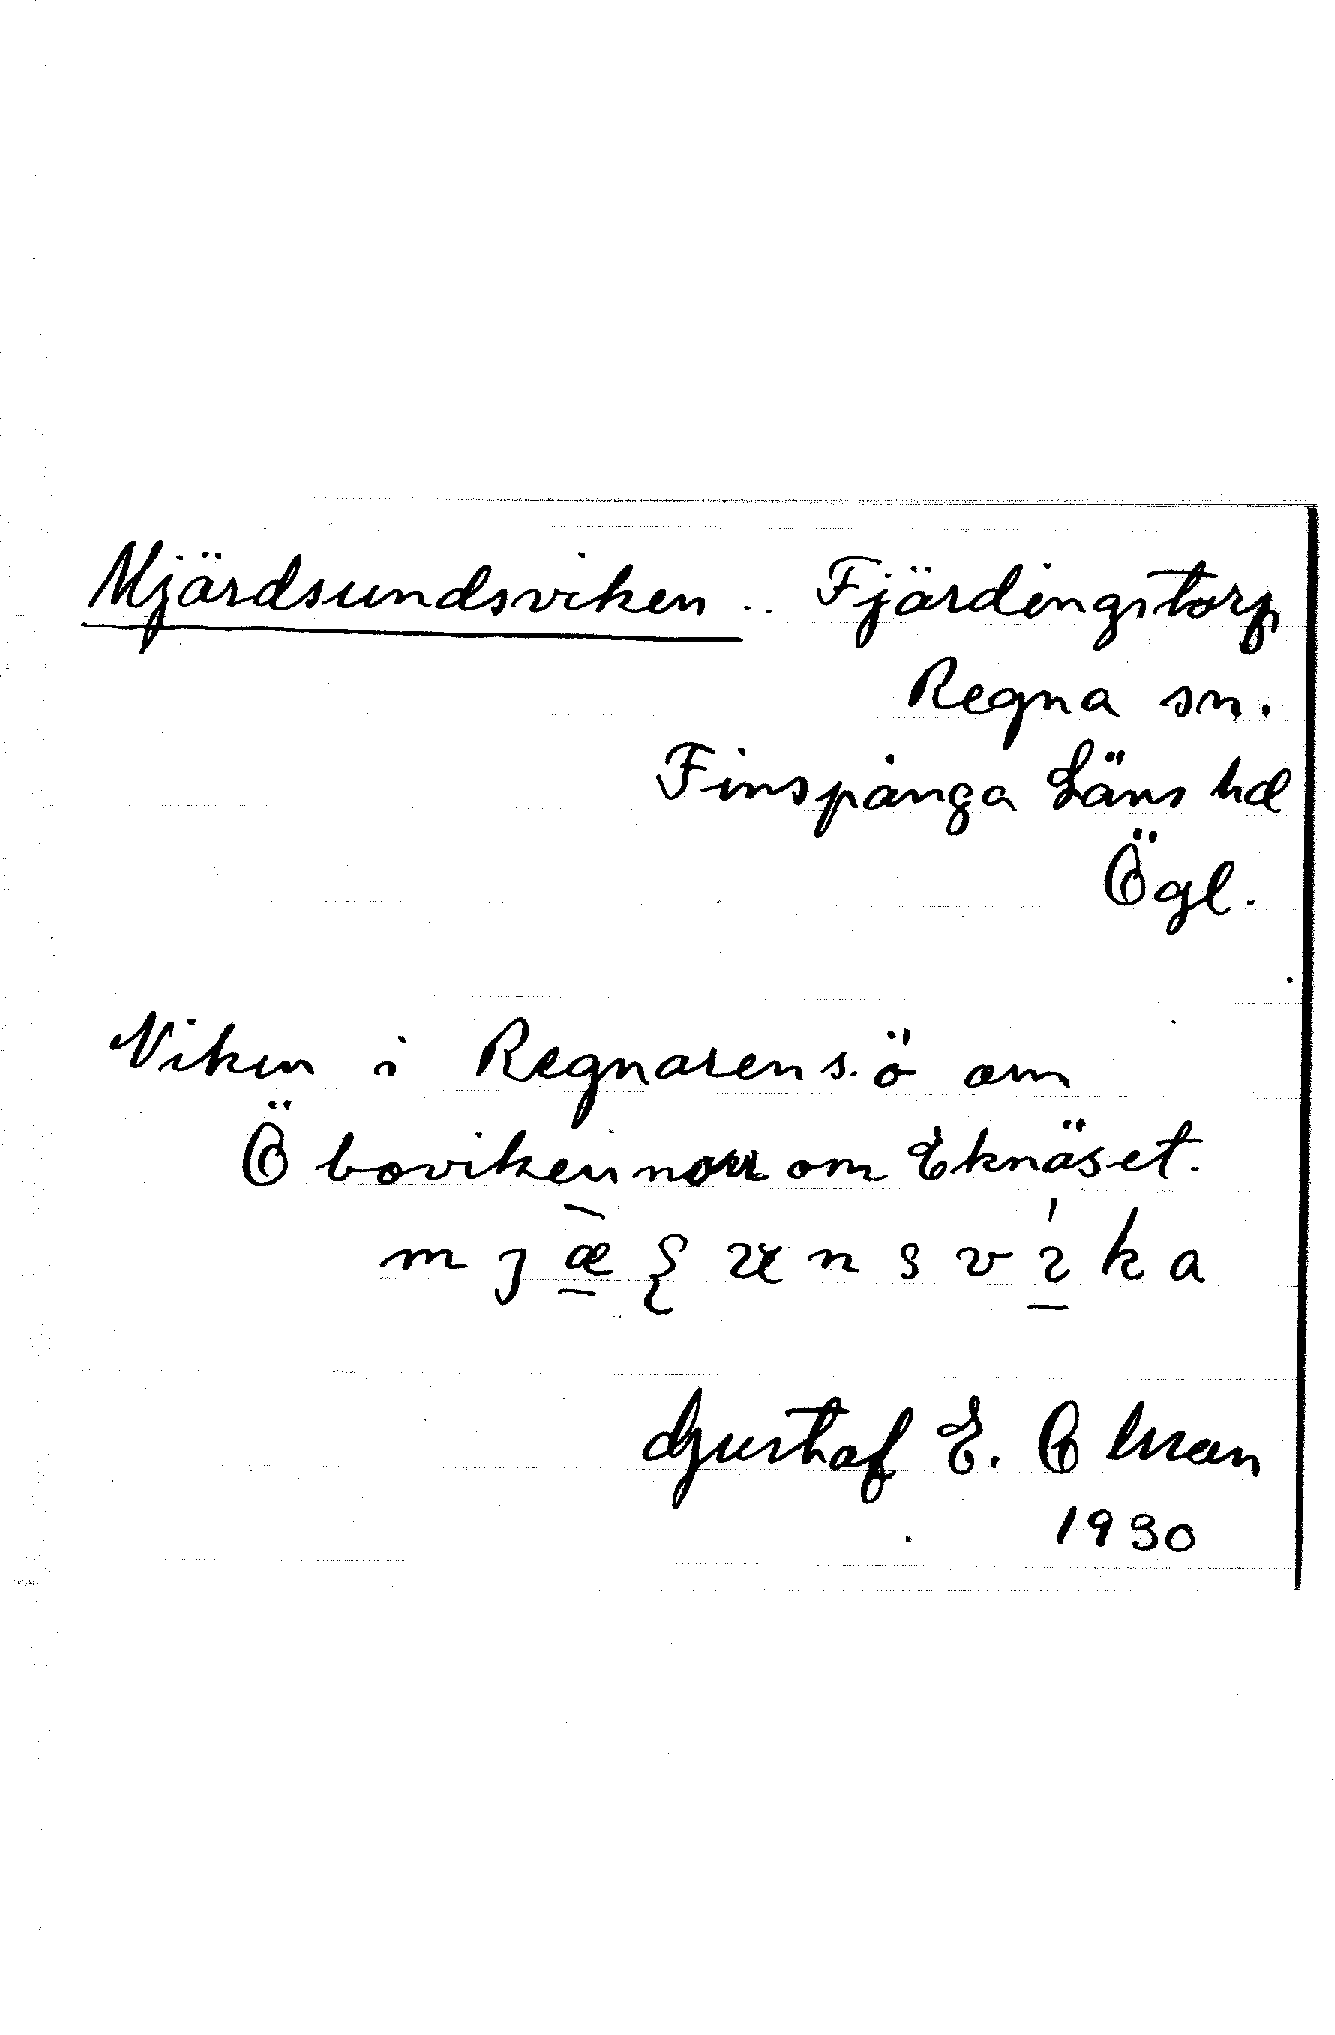 Mjärdsundsviken .. Fjärdingstorp
Regna sn.
Finspånga Läns hd
Ögl.
Viken i Regnaren s. ö om
Öboviken norr om Eknäset.
Gustaf E. Olman
1930